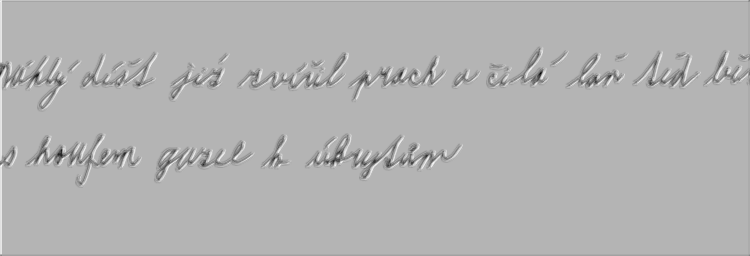 Náhlý déšť již zvířil prach a čilá laň teď běž
s houfem gazel k úkrytům